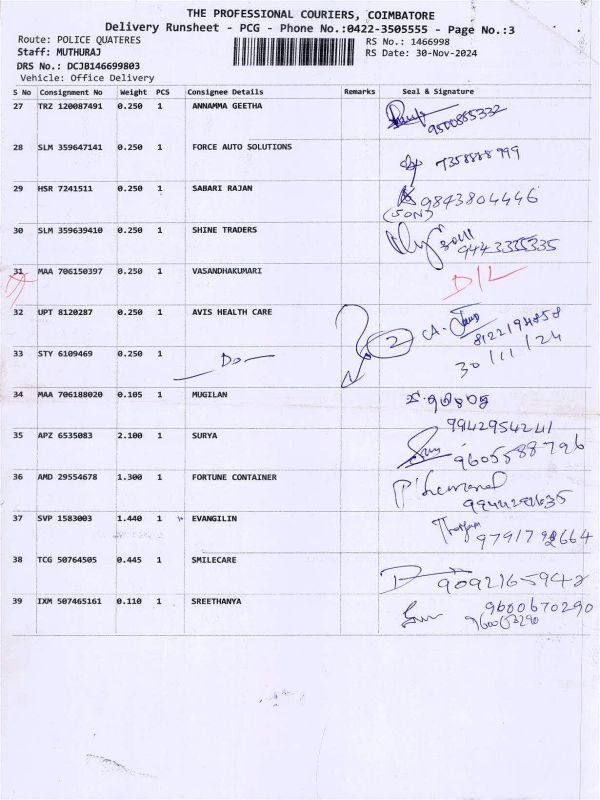 THE PROFESSIONAL COURIERS, COIMBATORE
Delivery Runsheet - PCG - Phone No.:0422-3505555 - Page No.:3
Route: POLICE QUATERES
RS No.: 1466998
Staff: MUTHURAJ
RS Date: 30-Nov-2024
DRS No.: DCJB146699803
Vehicle: Office Delivery
S No Consignment No Weight PCS Consignee Details Remarks Seal & Signature
27 TRZ 120087491 0.250 1 ANNAMMA GEETHA 9500865332
28 SLM 359647141 0.250 1 FORCE AUTO SOLUTIONS 7358888999
29 HSR 7241511 0.250 1 SABARI RAJAN 9843804446
(SON)
30 SLM 359639410 0.250 1 SHINE TRADERS
31 MAA 706150397 0.250 1 VASANDHAKUMARI D/L
32 UPT 8120287 0.250 1 AVIS HEALTH CARE 2 8122194858
33 STY 6109469 0.250 1 Do 30/11/24
34 MAA 706188020 0.105 1 MUGILAN
9942954241
35 APZ 6535083 2.100 1 SURYA 9605588796
36 AMD 29554678 1.300 1 FORTUNE CONTAINER
37 SVP 1583003 1.440 1 EVANGILIN
38 TCG 50764505 0.445 1 SMILECARE 9092165942
39 IXM 507465161 0.110 1 SREETHANYA 9600670290